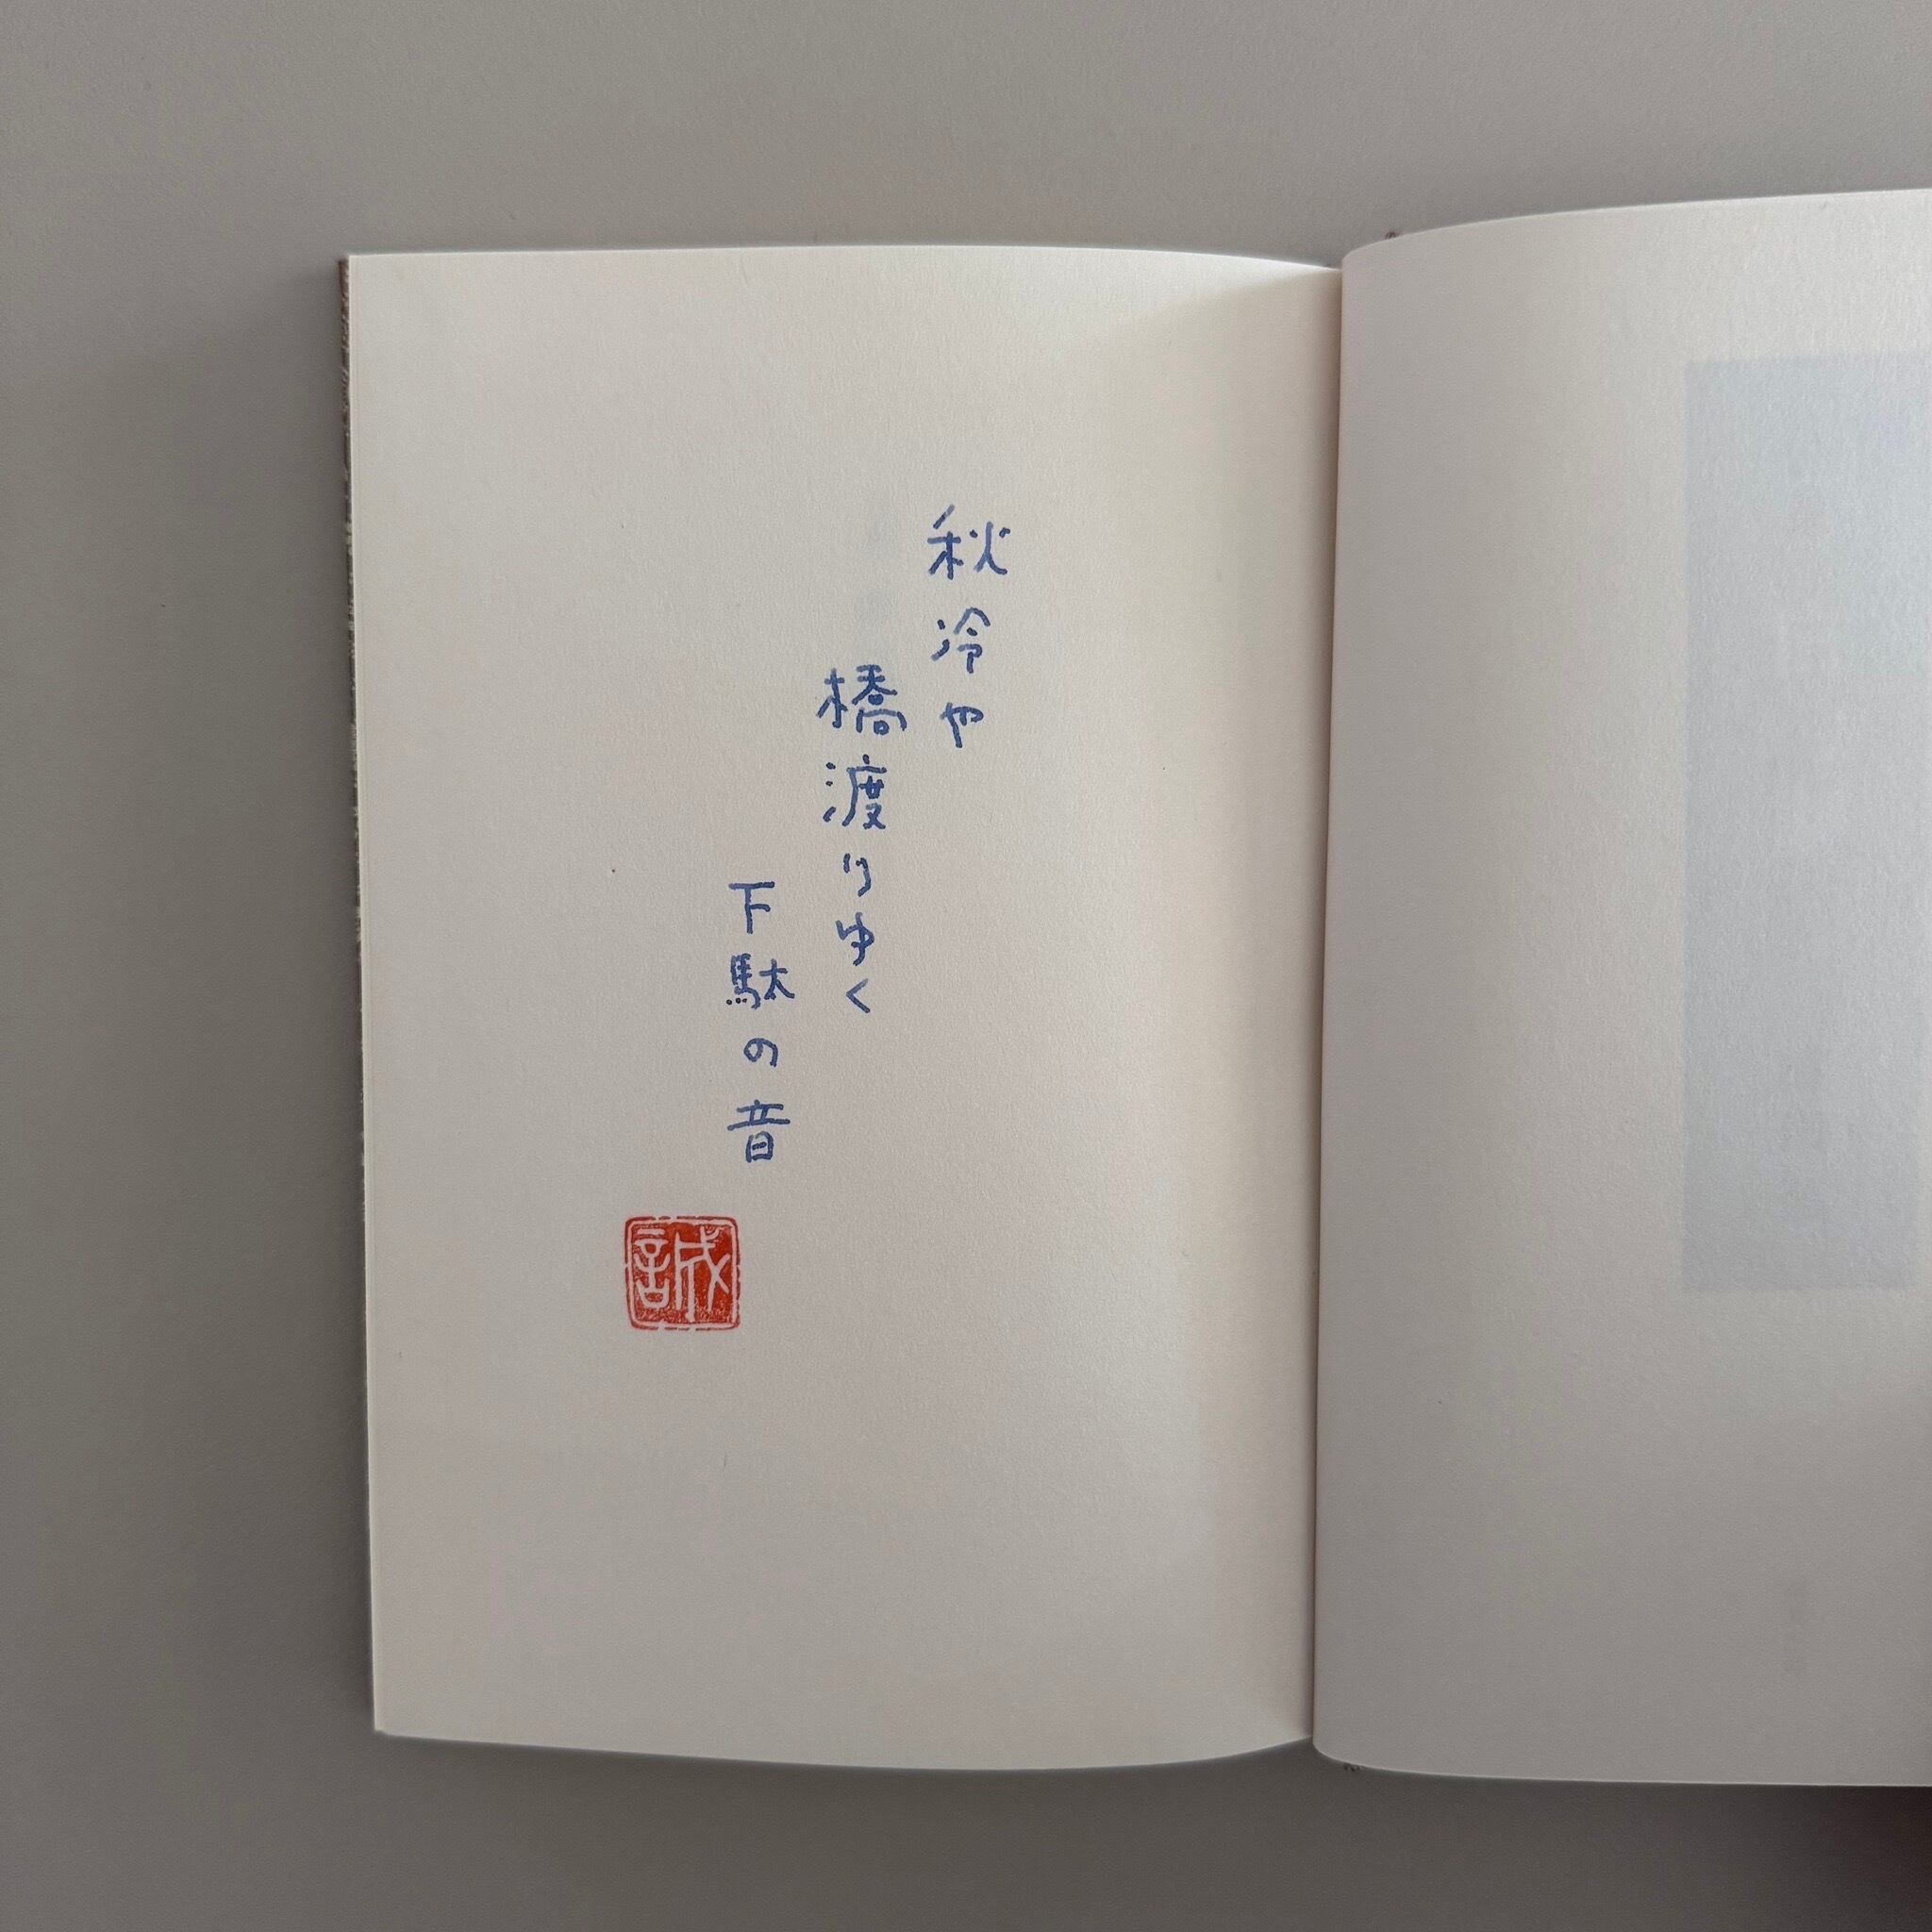 秋冷や
橋渡りゆく
下駄の音
誠